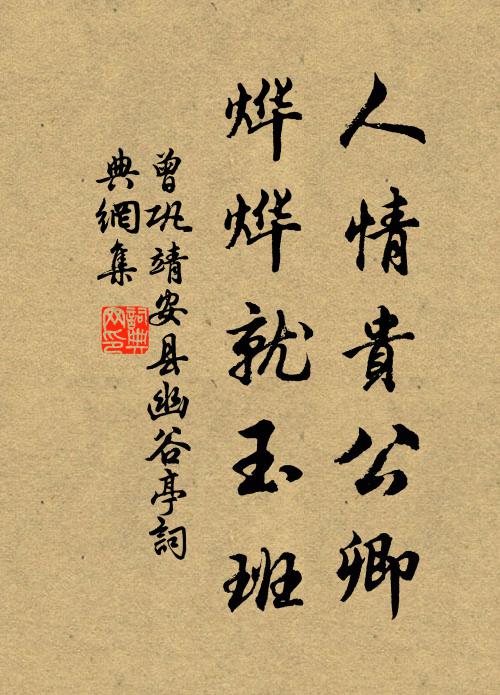 人情貴公卿
烨烨就玉班
曾巩靖安县幽谷亭詞
典網集
詞典网印